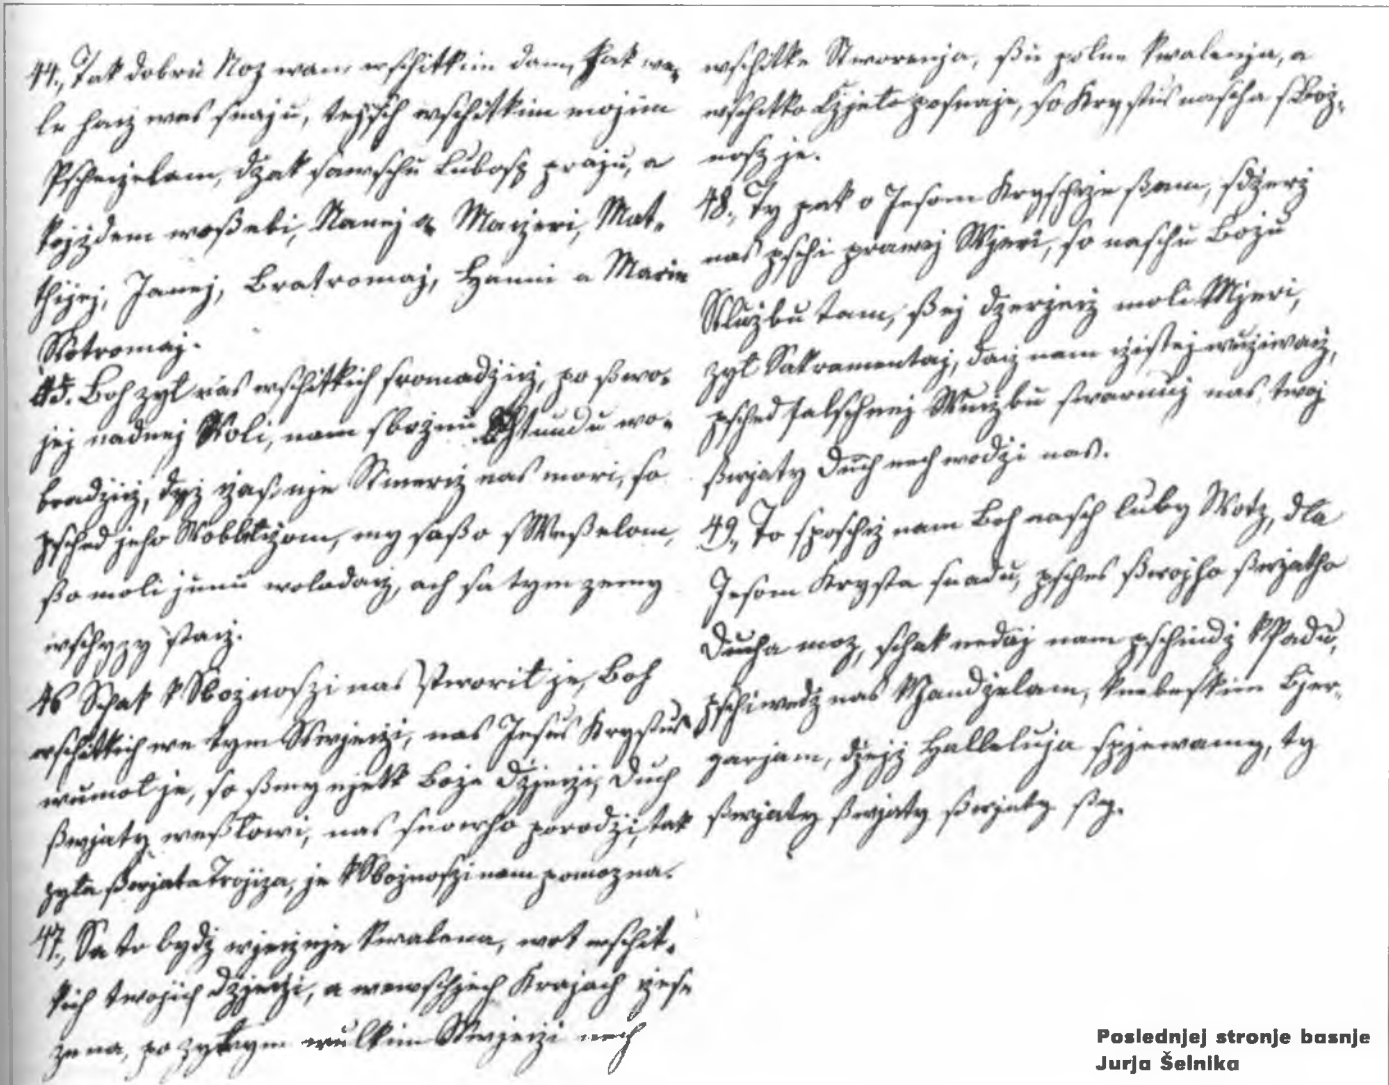 44., Tak dobru Noz wam, wschitkim dam, kak we-
le haiz was snaju, tejsch wschitkim mojim
Pscheczelam, dzak sawschu Lubosz praju, a
kojzdem woßebi, Nanej a Maczeri, Mat-
thijej, Janej, Bratromaj, Hanni a Marie
Sotromaj.
45. Boh zyl ras wschitkich sromadziz, po ßwo-
jej nadnej Woli, nam sboznu Schtundu wo-
bradziz, dyz zaßnje Smeriz nas mori, so
psched jeho Wobliczom, my saßo sWeßelom,
ßo moli junu woladaiz, ach sa tym zemy
wschyzy staiz.
46 Schak kSboznoszi nas stworil je, Boh
wschitkich we tym Swjeczi, nas Jesus Krystus
wumol je, so ßmy njekk Boze Dzjeczi, Duch
ßwjaty weßlowi, nas snowho porodzi, tak
zyla ßwjata Trojiza, je kSboznoszi nam pomozna.
47., Sa to bydz wjecznje kwalena, wot wschit-
kich twojich Dzjeczi, a wewschjech Krajach zjese
zena, po zylym wulkim Swjeczi nech
wschitke Stworenja, ßu polne kwalenja, a
wschitko Czjelo posnaje, so Krystus nascha sboz-
nosz je.
48., Ty pak o Jesom Kryschzje ßam, sdzerz
nas pschi prawej Wjeri, so naschu Bozu
Sluzbu tam, ßej dzerzeiz moli Mjeri,
zyl Sakramentaj, daiz nam czistej wuziwaiz,
psched falschnej Wuczbu swarnuj nas, twoj
ßwjaty Duch nech wodzi nas.
49., To sposchz nam Boh nasch luby Wotz, dla
Jesom Krysta snadu, psches ßwojho ßwjatho
Ducha moz, schak nedaj nam pschindz kPadu,
pschiwedz nas kJandzelam, knebeskim Bjer-
garjam, dzejz Halleluja spjewamy, ty
ßwjaty ßwjaty ßwjaty ßy.
Poslednjej stronje basnje
Jurja Šelnika